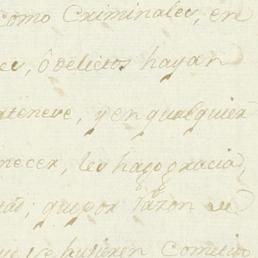 como Criminales, en
ó delictos hayan
y en qualquier
necer, les hago gracia,
que por razon de
se hubieren Cometido